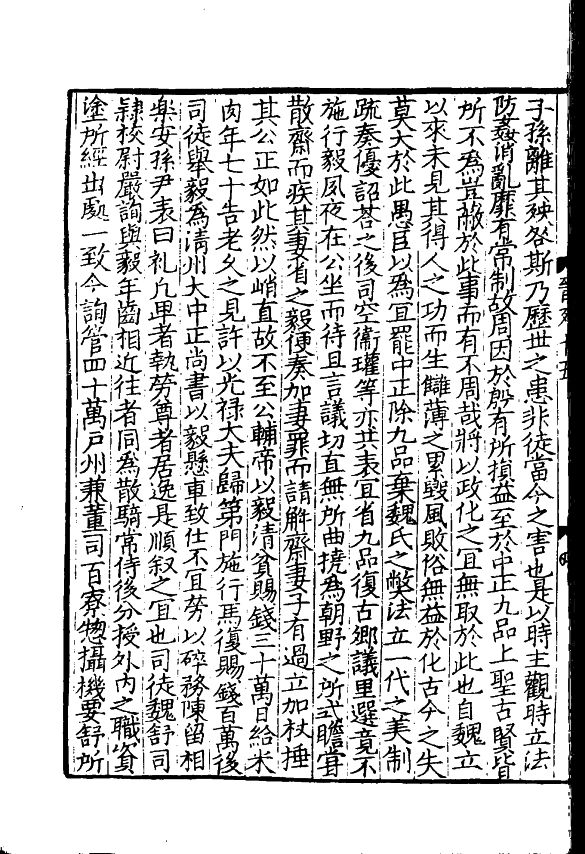 子孫離其殃咎斯乃歷世之患非徒當今之害也是以時主觀時立法
防姦消亂靡有常制故周因於殷有所損益至於中正九品上聖古賢皆
所不為豈蔽於此事而有不周哉將以政化之宜無取於此也自魏立
以來未見其得人之功而生讎薄之累毀風敗俗無益於化古今之失
莫大於此愚臣以為宜罷中正除九品棄魏氏之弊法立一代之美制
疏奏優詔荅之後司空衞瓘等亦共表宜省九品復古鄉議里選竟不
施行毅夙夜在公坐而待旦言議切直無所曲撓為朝野之所式瞻甞
散齋而疾其妻省之毅便奏加妻罪而請解齋妻子有過立加杖捶
其公正如此然以峭直故不至公輔帝以毅清貧賜錢三十萬日給米
肉年七十告老久之見許以光禄大夫歸第門施行馬復賜錢百萬後
司徒舉毅為清州大中正尚書以毅懸車致仕不宜勞以碎務陳留相
樂安孫尹表曰礼凡卑者執勞尊者居逸是順叙之宜也司徒魏舒司
隷校尉嚴詢與毅年齒相近往者同為散騎常侍後分授外内之職資
塗所經出處一致今詢管四十萬戸州兼董司百寮惣攝機要舒所